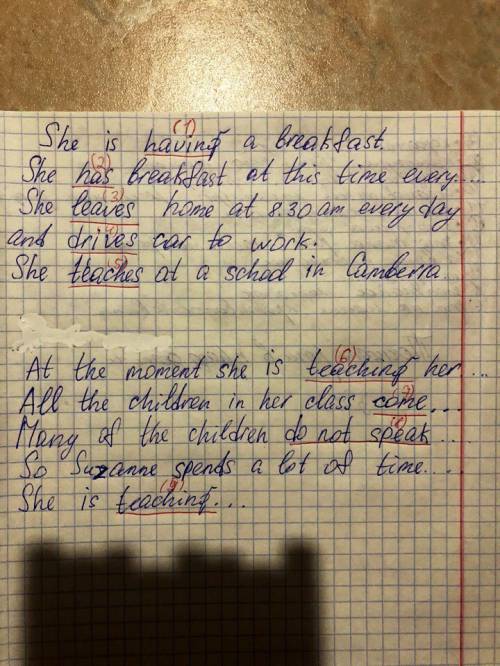 She is having (1) a breakfast.
She has (2) breakfast at this time every....
She leaves (3) home at 8.30 am every day
and drives car to work.
She teaches (5) at a school in Camberra.
At the moment she is teaching (6) her ...
All the children in her class come (7)...
Many of the children do not speak (8)...
So Suzanne spends a lot of time....
She is teaching (9)...